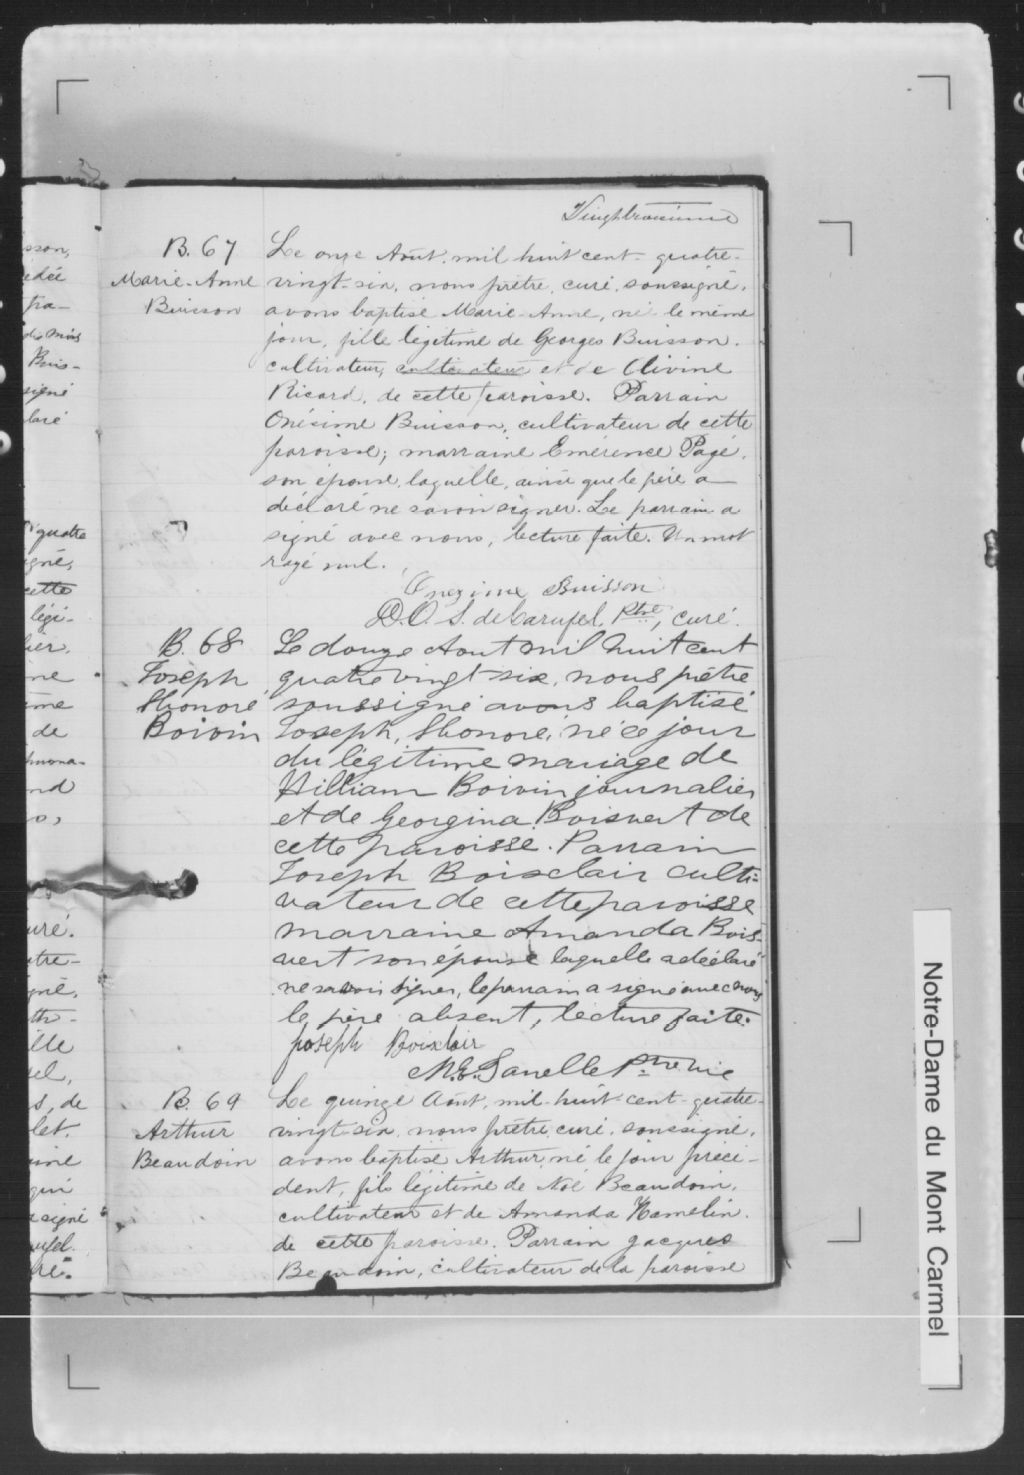 Vingttroisième
B. 67
Marie-Anne
Buisson
Le onze Août, mil huit cent-quatre-
vingt-six, nous prêtre, curé, soussigné,
avons baptisé Marie-Anne, née le même
jour, fille légitime de Georges Buisson.
cultivateur, cultivateur et de Olivine
Ricard, de cette paroisse. Parrain
Onésime Buisson, cultivateur de cette
paroisse; marraine Emérence Pagé,
son épouse, laquelle, ainsi que le père a
déclaré ne savoir signer. Le parrain a
signé avec nous, lecture faite. Un mot
rayé nul.
Onezime Buisson
D.O.S. de Carufel, Ptre, curé.
B. 68
Joseph
Honoré
Boivin
Le douze Aout mil huit cent
quatrevingt six, nous prêtre
soussigné avons baptisé
Joseph, Honoré, né ce jour
du légitime mariage de
William Boivin journalier
et de Georgina Boisvert de
cette paroisse. Parrain
Joseph Boisclair culti-
vateur de cette paroisse
marraine Amanda Bois-
vert son épouse laquelle a déclaré
ne savoir signer, le parrain a signé avec nous
le père absent, lecture faite.
Joseph Boixclair
Ptre vic
B. 69
Arthur
Beaudoin
Le quinze Août, mil-huit-cent-quatre-
vingt-six, nous prêtre, curé, soussigné,
avons baptisé Arthur, né le jour précé-
dent, fils légitime de Noé Beaudoin,
cultivateur et de Amanda Hamelin.
de cette paroisse. Parrain Jacques
Beaudoin, cultivateur de la paroisse
Notre-Dame du Mont Carmel